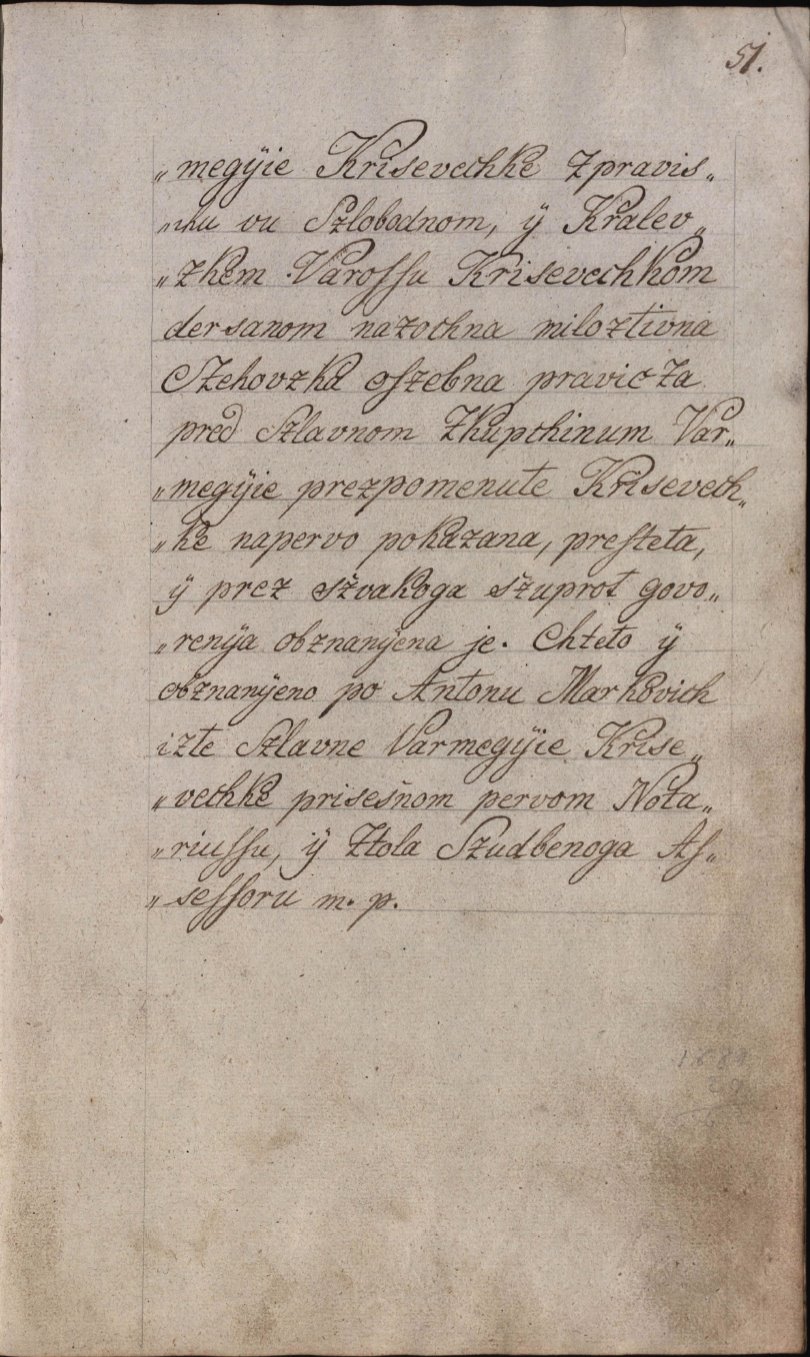 51.
„megÿie Krisevechke zpravis„
„chu vu Szlobodnom, ÿ Kralev„
„zkem Varossu Krisevechkom
dersanom nazochna miloztivna
Czehovzka oszebna pravicza
pred Szlavnom Zkupchinum Var„
„megÿie prezpomenute Krisevech„
„ke napervo pokazana, presteta,
ÿ prez szvakoga szuprot govo„
„renÿa obznanÿena je. Chteto ÿ
obznanÿeno po Antonu Markovich
izte Szlavne Varmegÿie Krise„
„vechke prisesnom pervom Nota„
„riussu, ÿ Ztola Szudbenoga As„
„sessoru m. p.